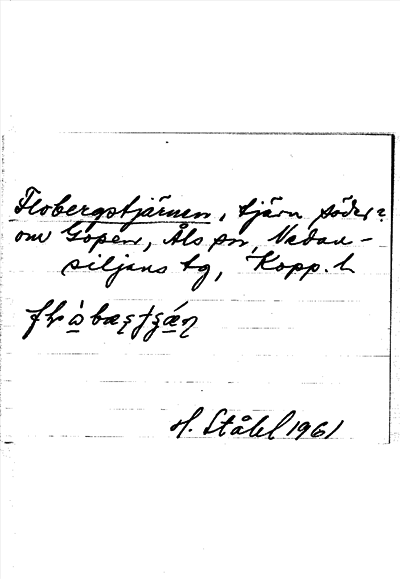 Flobergstjärnen, tjärn söder
om Gopen, Åls sn, Nedan-
siljans tg, Kopp. l.
H. Ståhl 1961